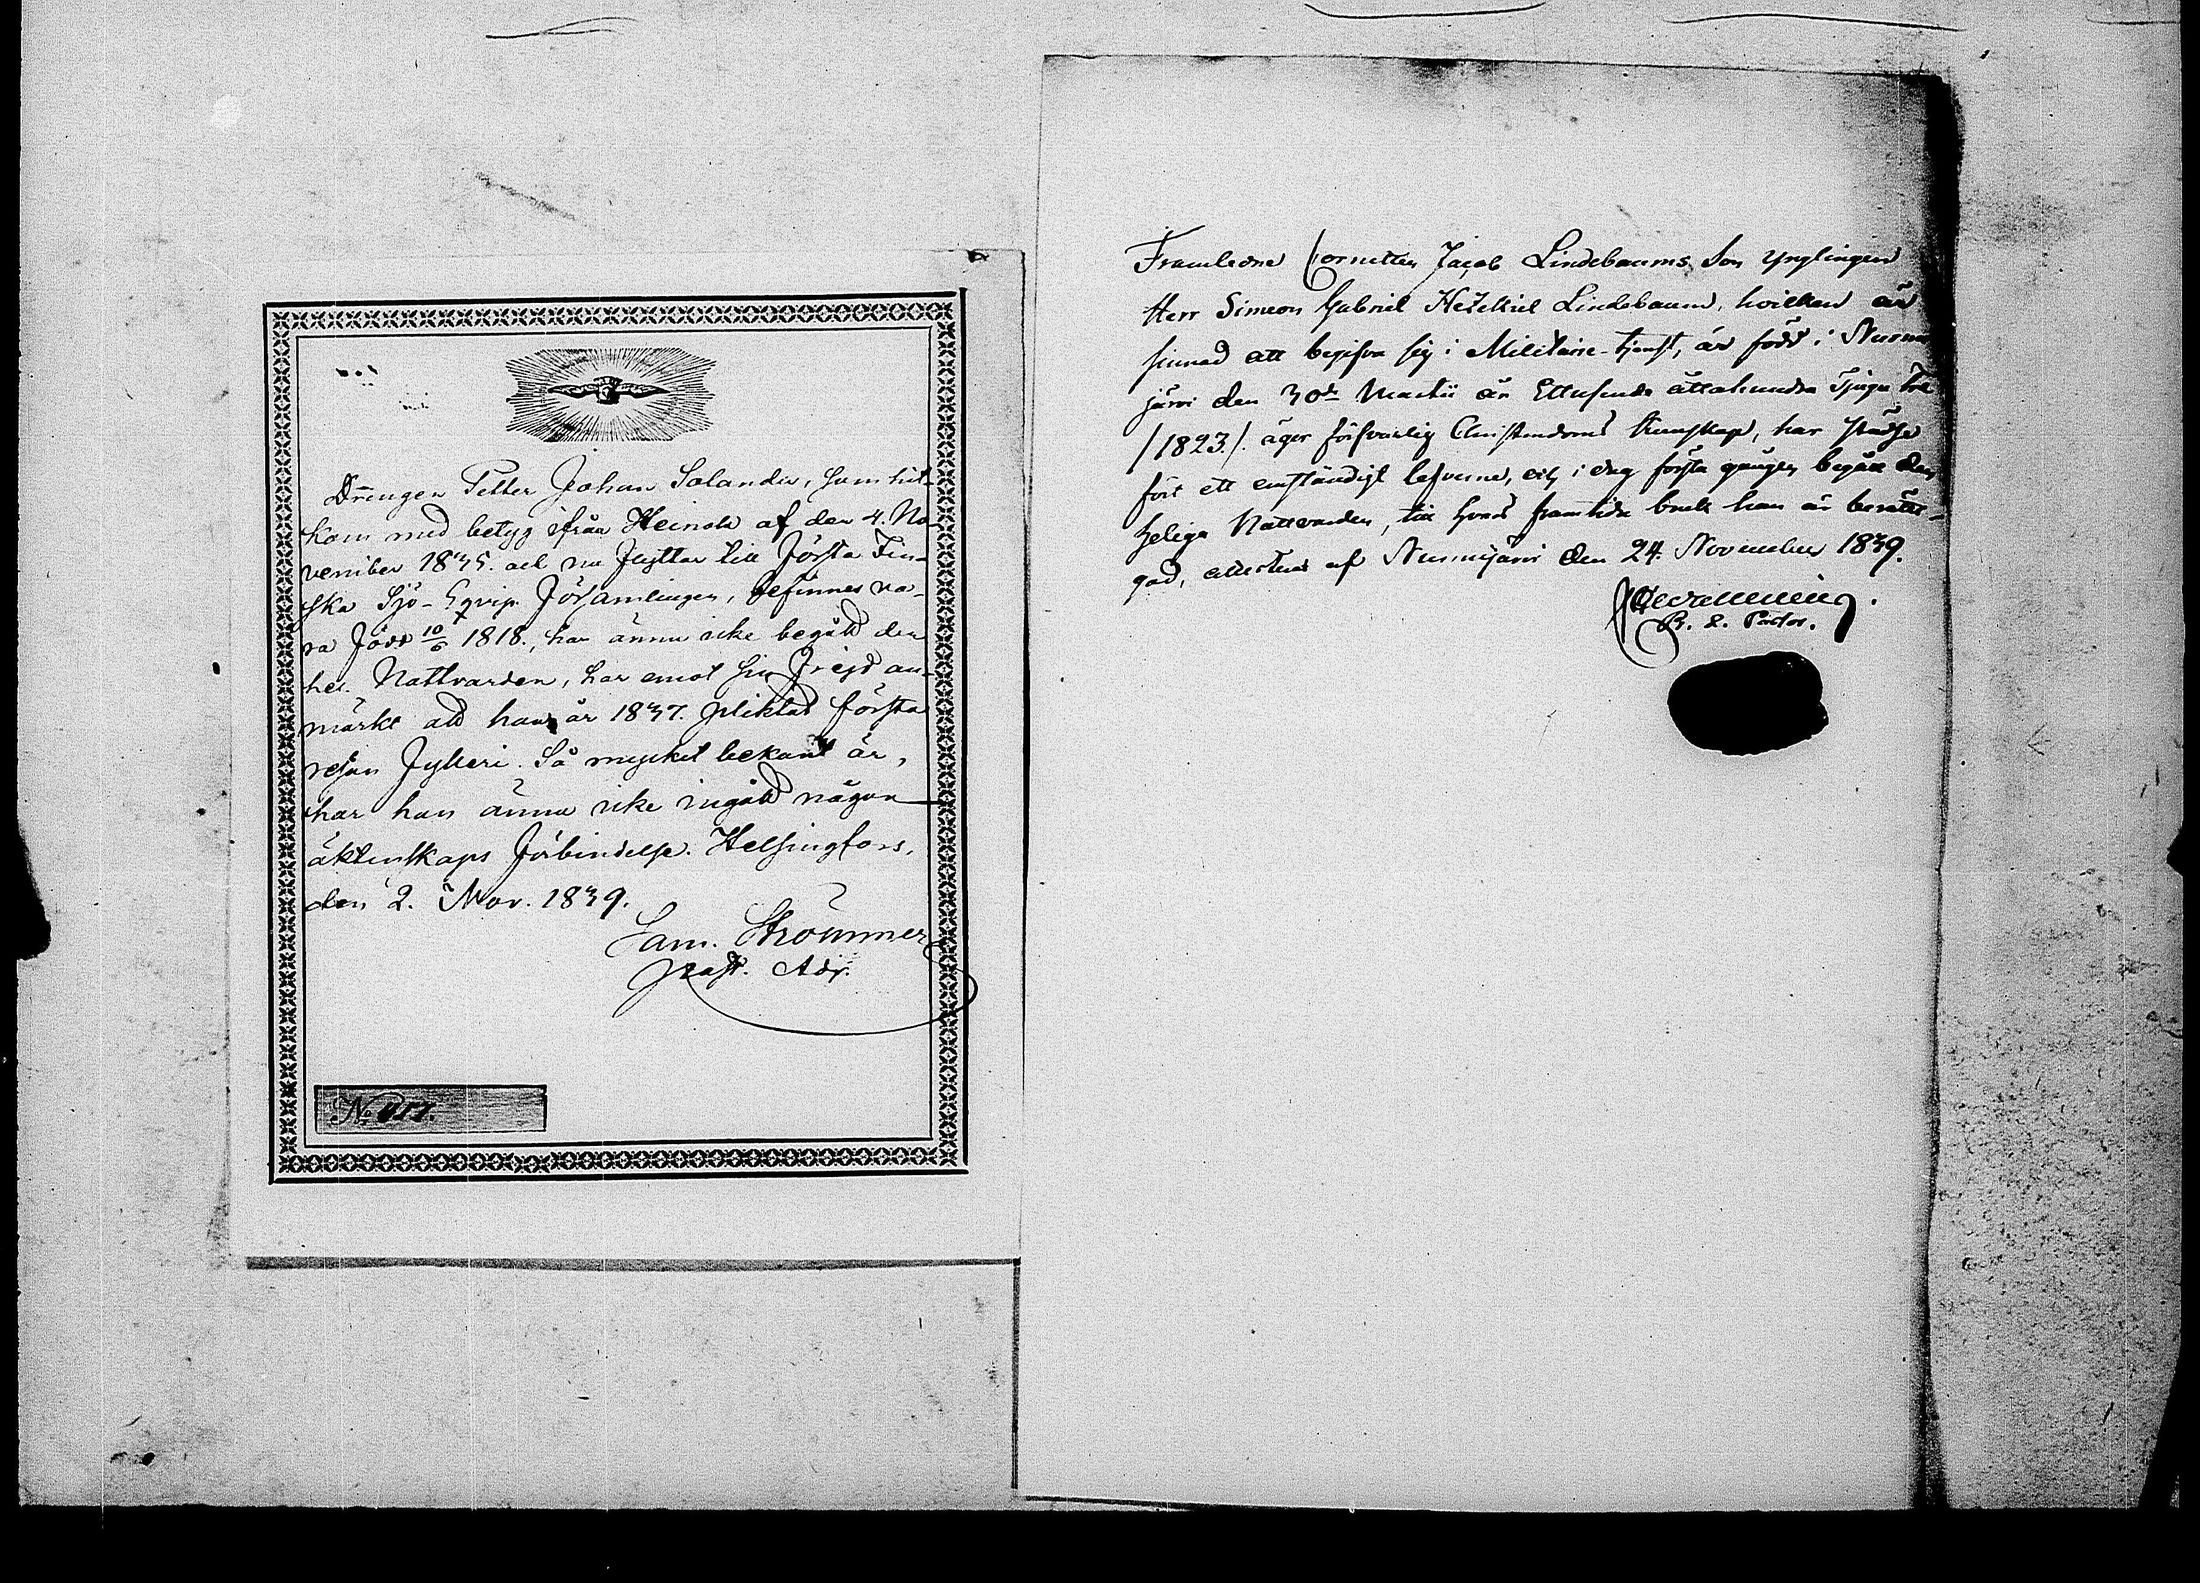 Drengen Petter Johan Solander, som hit-
kom med betyg ifrån Heinola af den 4. No-
vember 1835. och nu flyttar till Första Fin-
ska Sjö-Eqvip. Församlingen, befinnes va-
ra född 10/6 1818., har ännu icke begått den
hel. Nattvarden, har emot sin frejd an-
märkt att han år 1837. pliktat första
resan fylleri. Så mycket bekant är,
har han ännu icke ingått någon
äktenskaps förbindelse. Helsingfors,
den 2. Nov. 1839.
Sam. Strömmer
past. Adj.
No
Framledne Cornetten Jacob Lindebaums Son Ynglingen
Herr Simeon Gabriel Hezekiel Lindebaum, hvilken är
sinnad att begifva sig i Militaire-tjenst, är född i Nurmi
järvi den 30de Martii år Ettusende åttahundra Tjugu Tre
/1823./. äger försvarlig Christendoms Kunskap, har städse
fört ett anständigt lefverne, och i dag första gången begått den
heliga Nattvarden, till hvars framtida bruk han är berätti-
gad, attesteras af Nurmijärvi den 24. November 1839.
P. L. Pastor.